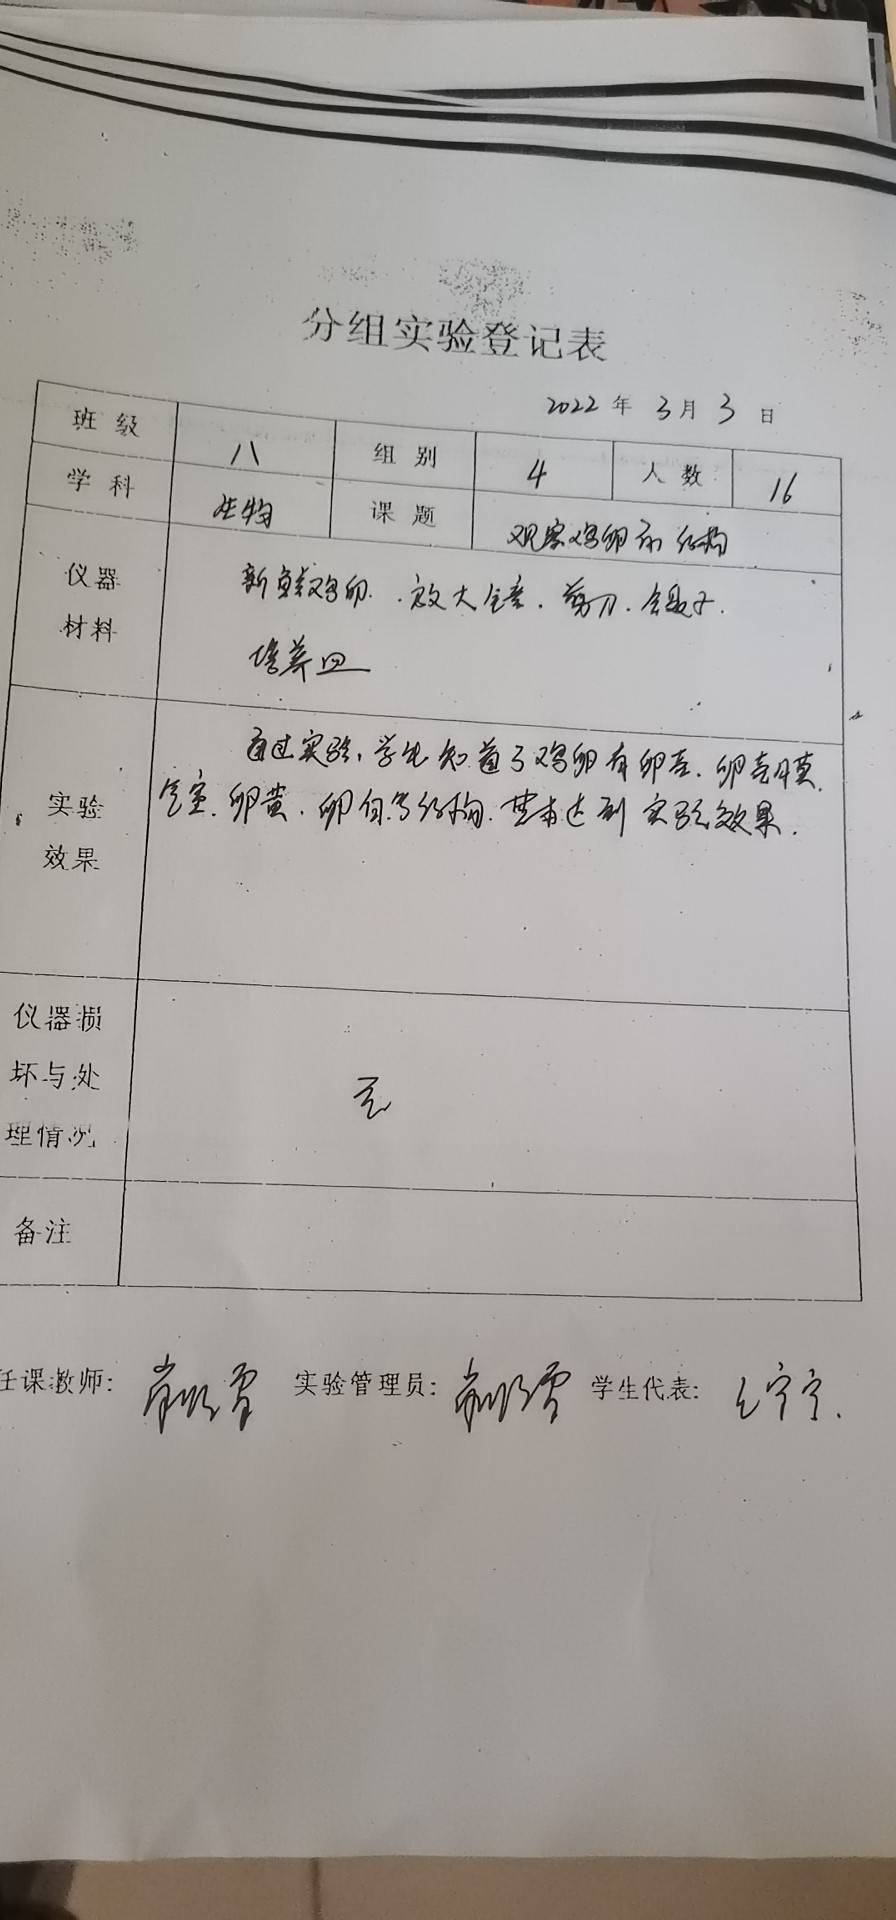 分组实验登记表
2022年3月3日
班级 八 组别 4 人数 16
学科 生物 课题 观察鸡卵的结构
仪器材料 新鲜鸡卵. 放大镜. 剪刀. 镊子.
培养皿
实验效果 通过实验,学生知道了鸡卵有卵壳. 卵壳膜.
气室. 卵黄. 卵白等结构. 基本达到实验效果.
仪器损坏与处理情况 无
备注
任课教师: 实验管理员: 学生代表: 宁宁.